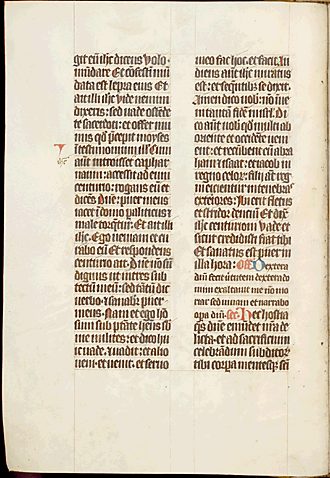 git eū ihc dicens volo.
mūdare Et cōfestī mū
data est lepra eius Et
ait illi ihc vide nemini
dixeris: sed uade ostēde
te sacerdoti: et offer mu
nus qd̄ p̄cepit moyses
in testimonium illis Cum
aūt introisset caphar
naum: accessit ad eum
centurio: rogans eum et
dicens Dn̄e: puer meus
iacet ī domo paliticus et
male torquetur Et ait illi
ihc Ego ueniam et cu
rabo eū Et respondens
centurio ait Dn̄e nō sū
dignus ut intres sub
tectū meū: sed tātū dic
uerbo et sanabit puer
meus Nam et ego hō
sum sub ptāte hn̄s sb
me milites: et dico hu
ic uade: et uadit: et alio
ueni et uenit. et seruo
meo fac hoc et facit. Au
diens aūt ihc miratus
est: et sequētib se dixit.
Amen dico uob: nō īue
ni tantā fidē ī isrl. Di
co aūt uob qd̄ multi ab
oriente et occidēte veni
ent: et recūbēt cū abra
ham et isaac: et iacob in
regno celor: filii aūt reg
ni eicientur in tenebras
exteriores: Ibi erit fletus
et stridor dentiū Et dix̄
ihc centurioni Vade et
sicut credidisti fiat tibi
Et sanatus est puer in
illa hora: Off Dextera
dn̄i fecit uirtutem dextera do
mini exaltauit me nō mo
riar sed uiuam et narrabo
opa dn̄i. Sec̄ Hec hostia
qs̄ dn̄e emūdet nr̄a de
licta: et ad sacrificium
celebrādum subditor
tibi corpa mentesqꝫ scī